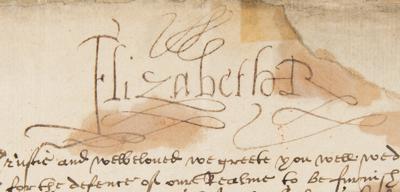 Elizabeth R
Trustie and welbeloved we greete you well we
for the defence of our Realme to be furnish